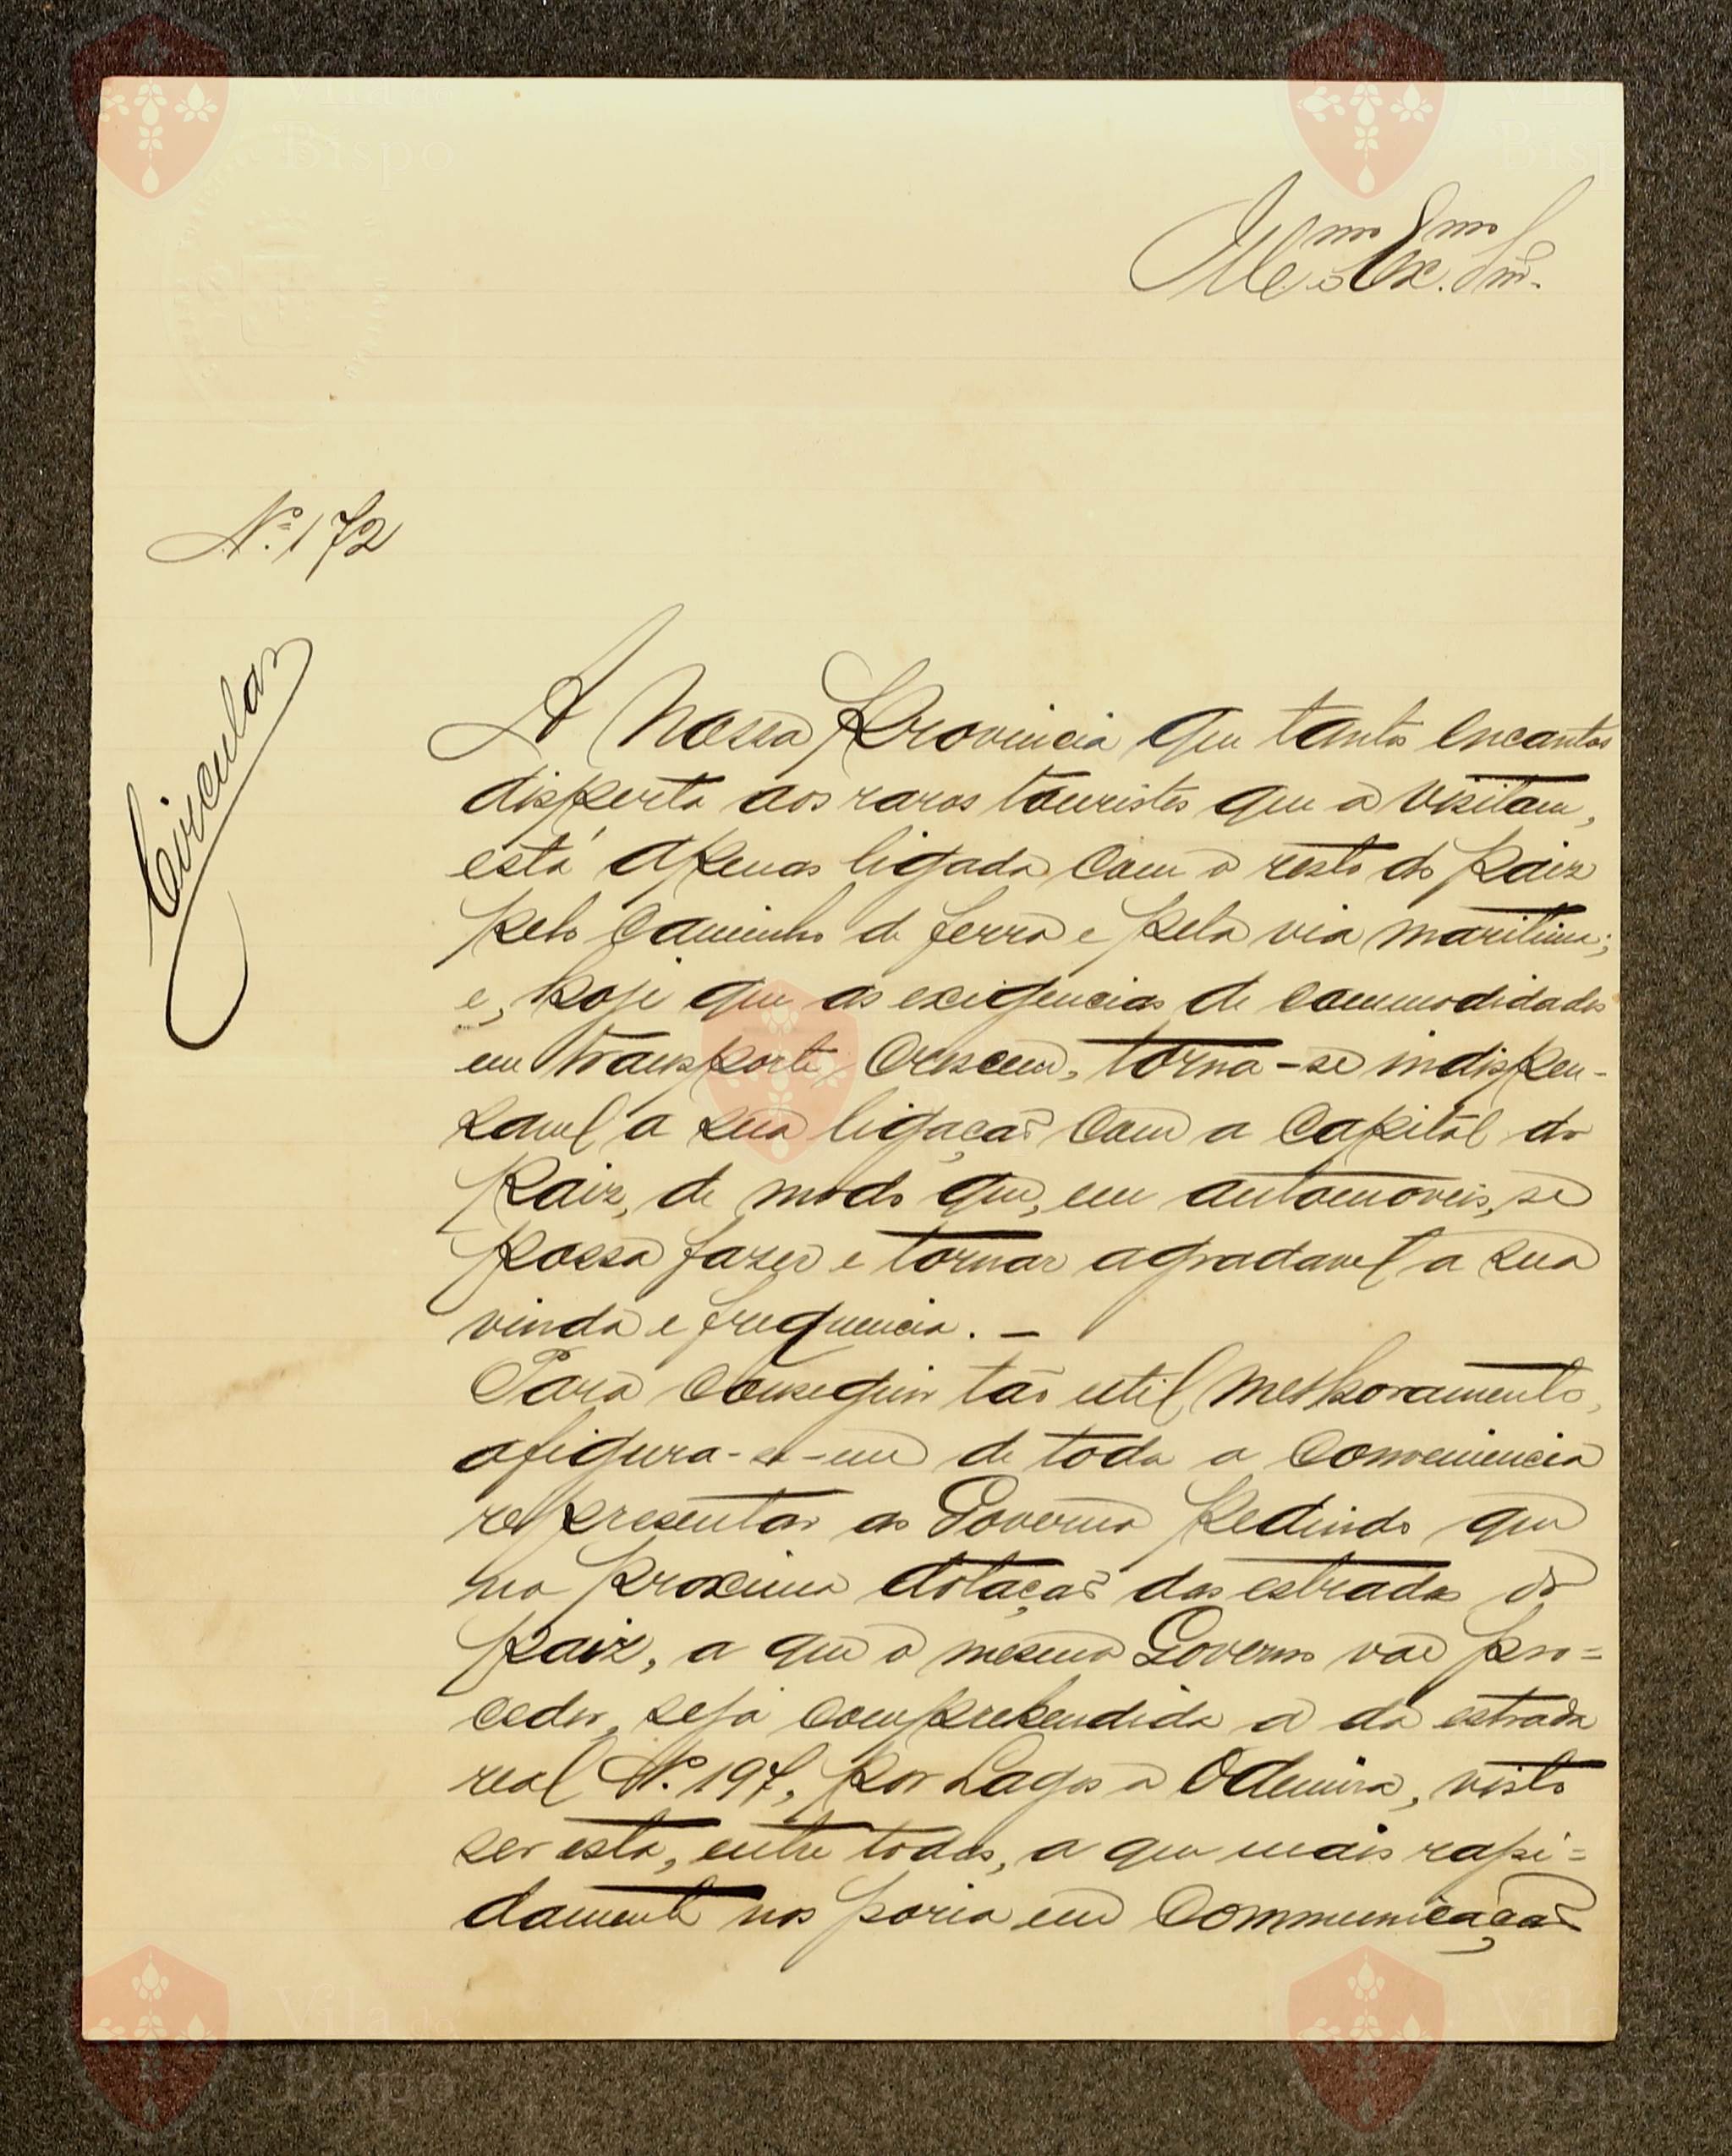 Ill.mo e Ex.mo Snr.
N.º 172
Circular
A Nossa Provincia que tantos encantos
disperta aos raros touristes que a visitam,
está apenas ligada com o resto do paiz
pelo caminho de ferro e pela via maritima;
e, hoje que as exigencias de commodidades
em transporte crescem, torna-se indispen-
savel a sua ligação com a capital do
paiz, de modo que, em automoveis, se
possa fazer e tornar agradavel a sua
vinda e frequencia. —
Para conseguir tão util melhoramento,
afigura-se-me de toda a conveniencia
representar ao Governo pedindo que
na proxima dotação das estradas do
paiz, a que o mesmo Governo vae pro=
ceder, seja comprehendida a da estrada
real N.º 197, por Lagos a Odemira, visto
ser esta, entre todas, a que mais rapi=
damente nos poria em communicação
Vila do
Bispo
Vila do
Bispo
Vila do
Bispo
Vila do
Bispo